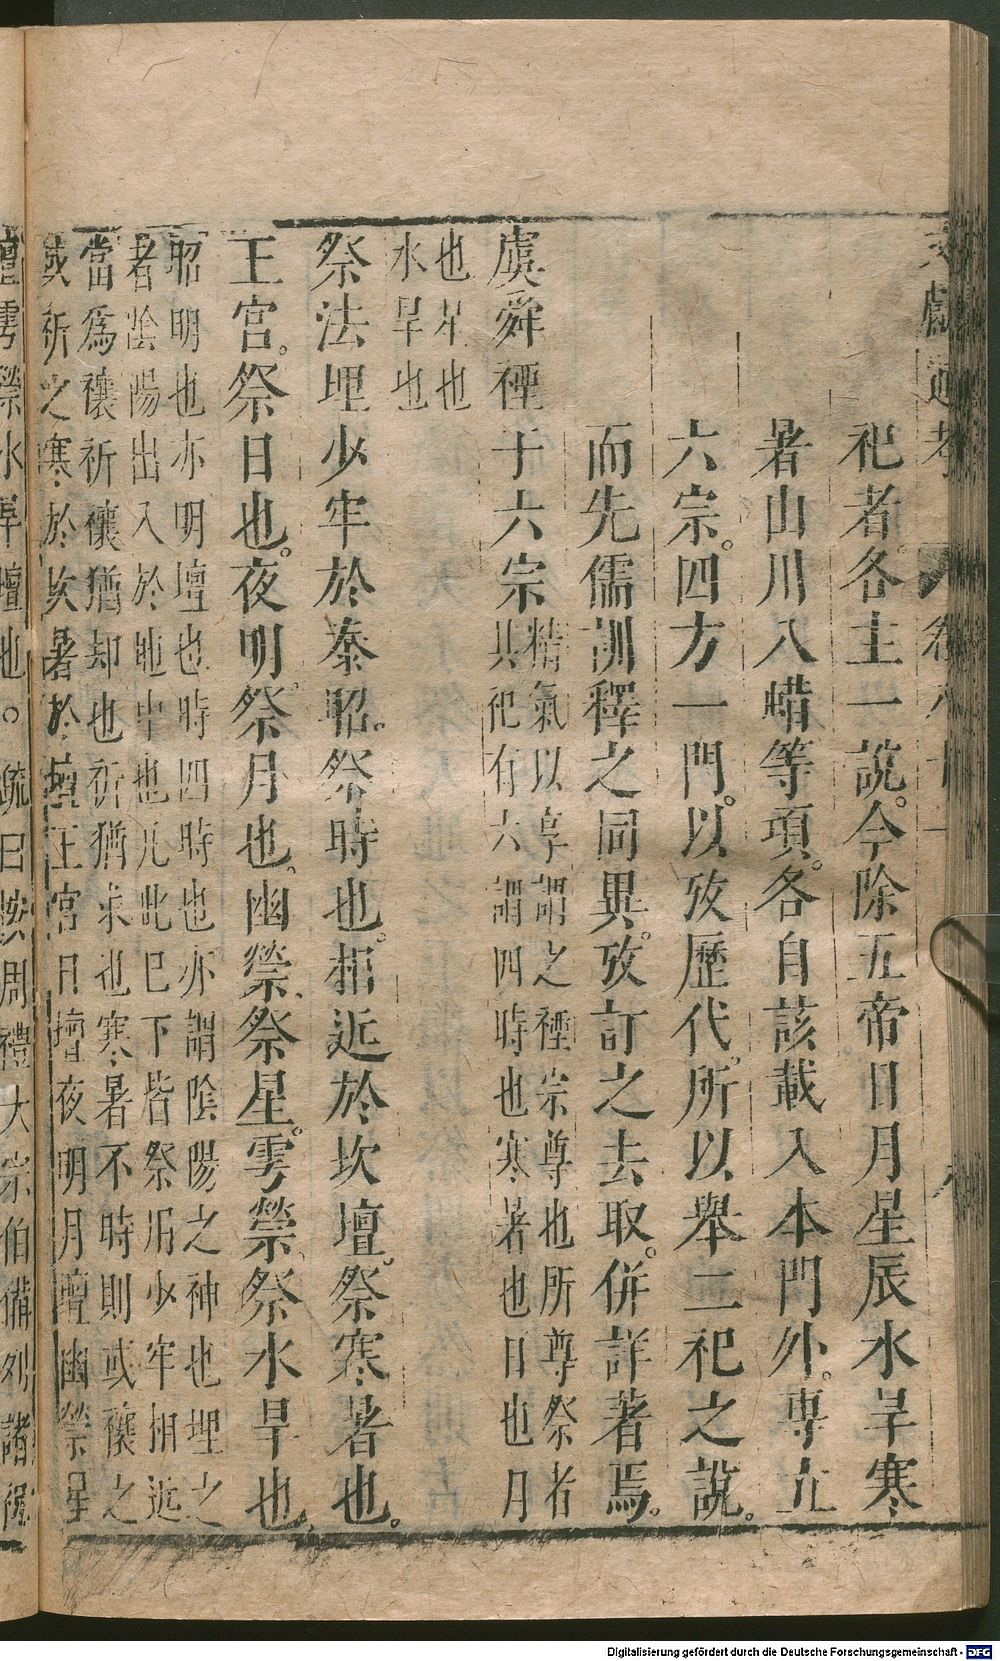 文獻通考 卷八十一
祀者各主一說今除五帝日月星辰水旱寒
暑山川八蜡等項各自該載入本門外專立
六宗四方一門以攷歷代所以舉二祀之說
而先儒訓釋之同異攷訂之去取併詳著焉
虞舜禋于六宗
精氣以享謂之禋宗尊也所尊祭者
其祀有六謂四時也寒暑也日也月
也星也
水旱也
祭法埋少牢於泰昭祭時也相近於坎壇祭寒暑也
王宮祭日也夜明祭月也幽禜祭星雩禜祭水旱也
昭明也亦明壇也時四時也亦謂陰陽之神也埋之
者陰陽出入於地中也凡此已下皆祭用少牢相近
當為禳祈禳猶却也祈猶求也寒暑不時則或禳之
或祈之寒於坎暑於壇王宮日壇夜明月壇幽禜星
壇雩禜水旱壇也。疏曰按周禮大宗伯備列諸祀
Digitalisierung gefördert durch die Deutsche Forschungsgemeinschaft - DFG